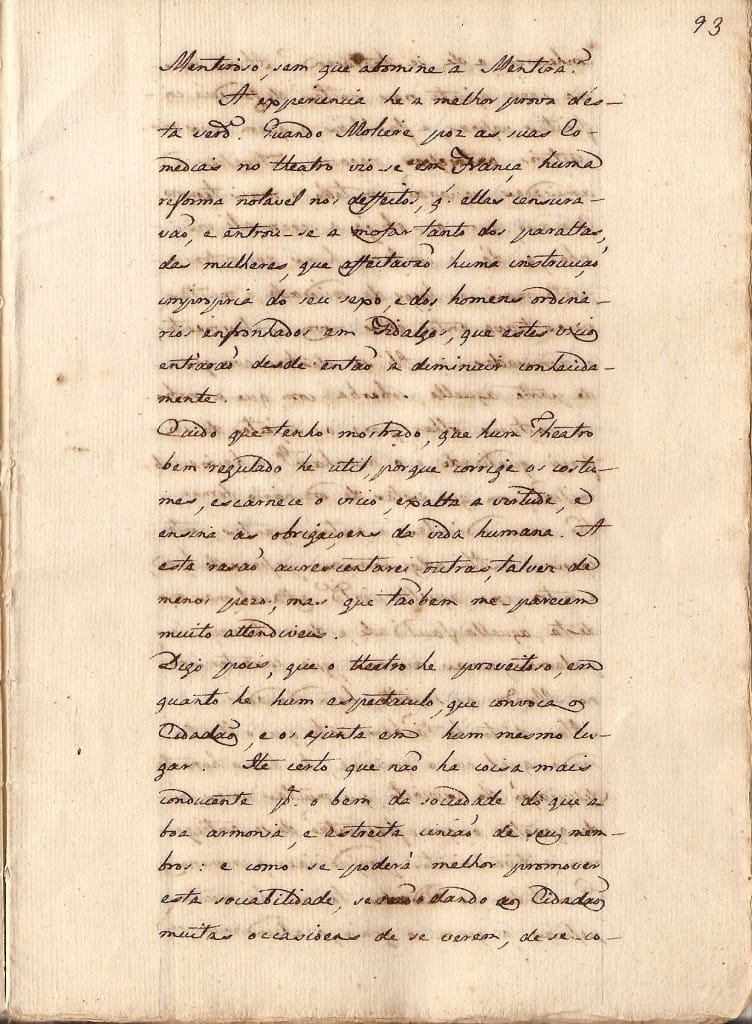 93
Mentiroso, sem que abomine a Mentira?
A experiencia he a melhor prova dés-
ta verd.e Quando Moliere poz as suas Co-
medias no theatro vio-se em França huma
reforma notavel nos deffeitos, q. ellas censura-
vaõ, e entrou-se a mofar tanto dos paraltas,
das mulheres, que affectavaõ huma instrucçaõ
impropria do seu sexo, e dos homens ordina-
rios enfronhados em Fidalgos, que estes vicios
entraraõ desde entaõ a diminuir conhecida-
mente.
Cuido que tenho mostrado, que hum Theatro
bem regulado he util, porque corrige os costu-
mes, escarnece o vicio, exalta a virtude, e
ensina as obrigaçoens da vida humana. A
esta rasaõ accrescentarei outras, talvez de
menos pezo, mas que taõbem me-parecem
muito attendiveis.
Digo pois, que o theatro he proveitoso, em
quanto he hum espectaculo, que convoca os
Cidadaõs, e os ajunta em hum mesmo lu-
gar. He certo que naõ ha coisa mais
conducente p.a o bem da sociedade do que a
boa armonia, e estreita uniaõ de seus mem-
bros: e como se-poderá melhor promover
esta sociabilidade, se naõ dando aos Cidadaõs
muitas occasioens de se verem, de se-co-